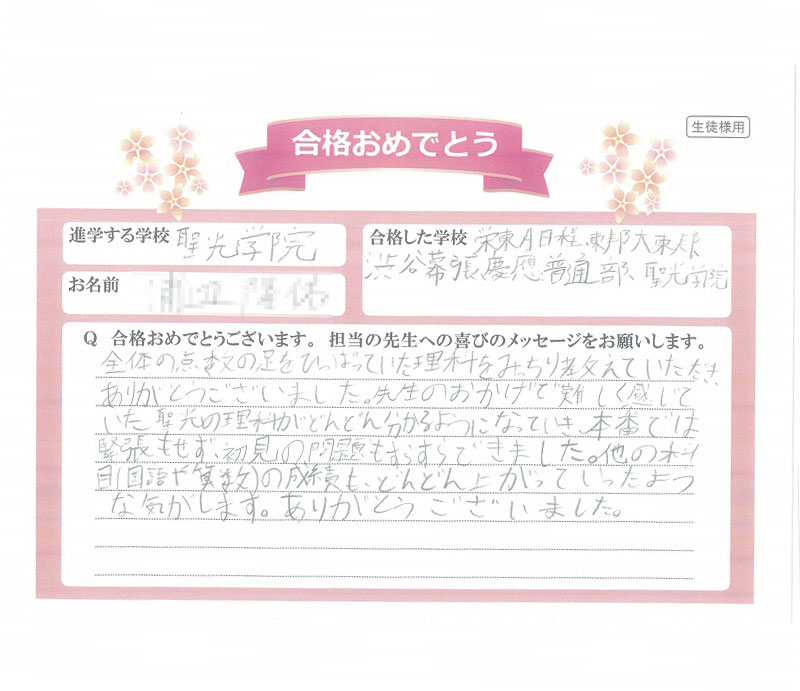 生徒様用
合格おめでとう
進学する学校 聖光学院
合格した学校 栄東A日程、東邦大東邦
渋谷幕張、慶應普通部、聖光学院
お名前
Q 合格おめでとうございます。担当の先生への喜びのメッセージをお願いします。
全体の点数の足をひっぱっていた理科をみっちり教えていただき
ありがとうございました。先生のおかげで難しく感じて
いた聖光の理科がどんどん分かるようになっていき、本番では
緊張もせず、初見の問題もすらすらできました。他の科
目(国語や算数)の成績も、どんどん上がっていったよう
な気がします。ありがとうございました。